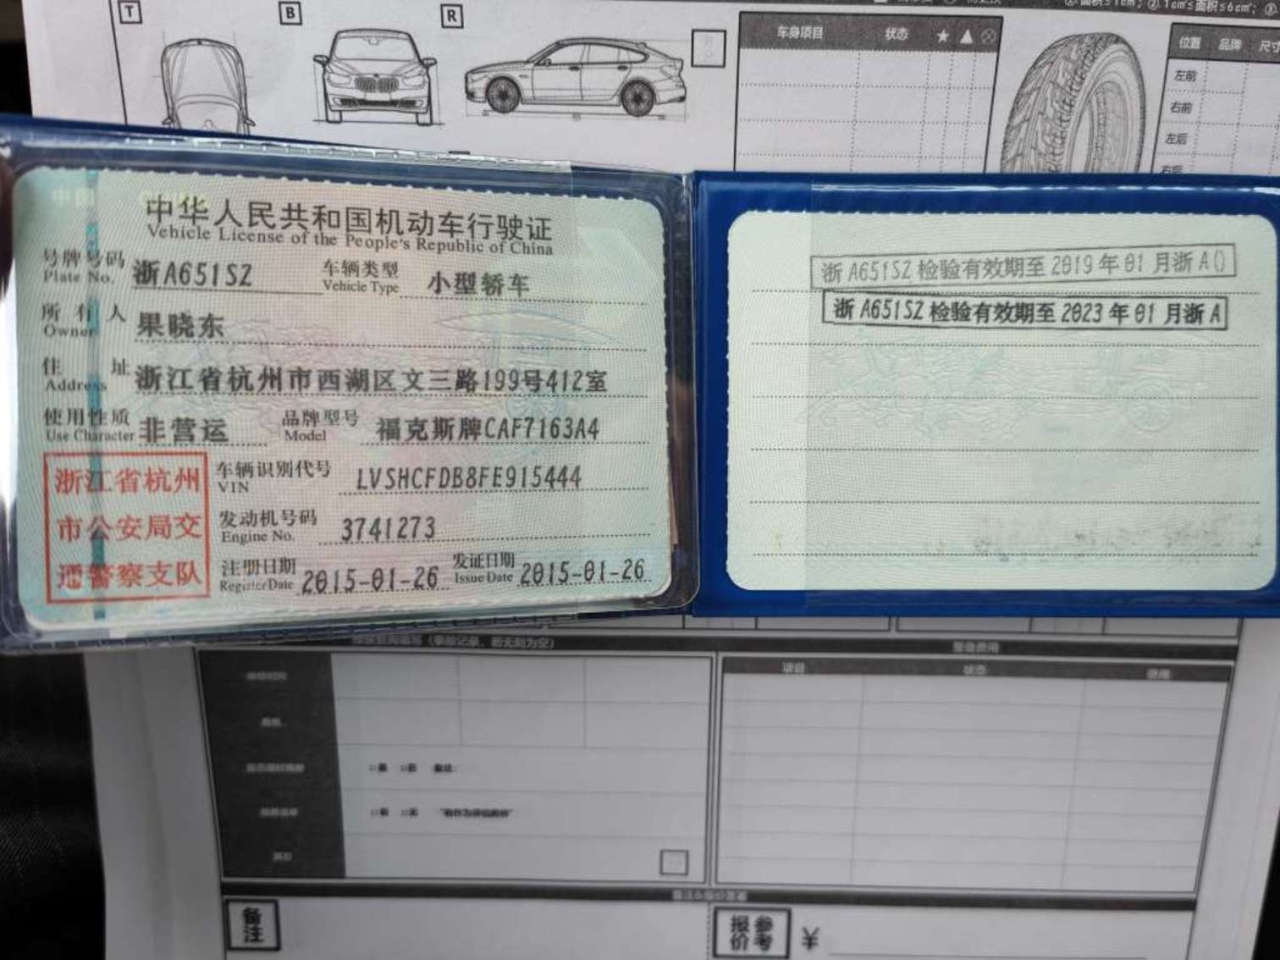 T
B
R
车身项目 状态 ★ ▲ ⊗
位置 品牌 尺寸
左前
右前
左后
中华人民共和国机动车行驶证
Vehicle License of the People's Republic of China
号牌号码 浙A651SZ 车辆类型 小型轿车
Plate No. Vehicle Type
所有人 果晓东
Owner
住址 浙江省杭州市西湖区文三路199号412室
Address
使用性质 非营运 品牌型号 福克斯牌CAF7163A4
Use Character Model
浙江省杭州
市公安局交
通警察支队
车辆识别代号 LVSHCFDB8FE915444
VIN
发动机号码 3741273
Engine No.
注册日期 2015-01-26 发证日期 2015-01-26
Register Date Issue Date
浙A651SZ 检验有效期至 2019 年 01 月浙 A()
浙A651SZ 检验有效期至 2023 年 01 月浙 A
项目 状态 费用
备注
参考报价 ¥